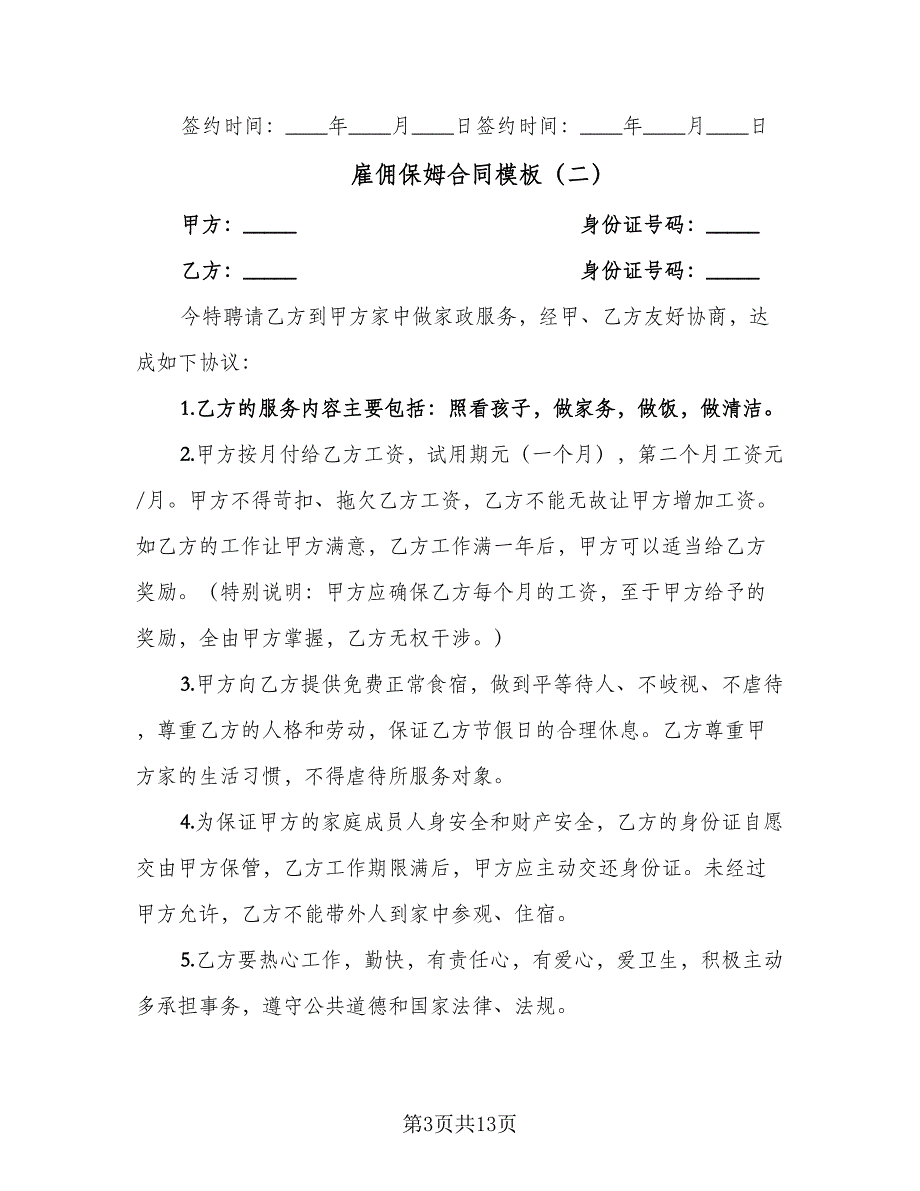 签约时间：____年____月____日签约时间：____年____月____日
雇佣保姆合同模板（二）
甲方：_____ 身份证号码：_____
乙方：_____ 身份证号码：_____
今特聘请乙方到甲方家中做家政服务，经甲、乙方友好协商，达
成如下协议：
1.乙方的服务内容主要包括：照看孩子，做家务，做饭，做清洁。
2.甲方按月付给乙方工资，试用期元（一个月），第二个月工资元
/月。甲方不得苛扣、拖欠乙方工资，乙方不能无故让甲方增加工资。
如乙方的工作让甲方满意，乙方工作满一年后，甲方可以适当给乙方
奖励。（特别说明：甲方应确保乙方每个月的工资，至于甲方给予的
奖励，全由甲方掌握，乙方无权干涉。）
3.甲方向乙方提供免费正常食宿，做到平等待人、不岐视、不虐待
，尊重乙方的人格和劳动，保证乙方节假日的合理休息。乙方尊重甲
方家的生活习惯，不得虐待所服务对象。
4.为保证甲方的家庭成员人身安全和财产安全，乙方的身份证自愿
交由甲方保管，乙方工作期限满后，甲方应主动交还身份证。未经过
甲方允许，乙方不能带外人到家中参观、住宿。
5.乙方要热心工作，勤快，有责任心，有爱心，爱卫生，积极主动
多承担事务，遵守公共道德和国家法律、法规。
第3页共13页